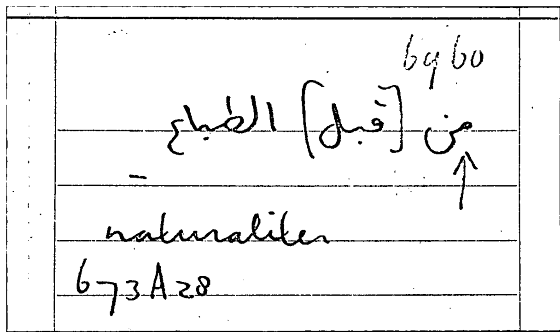 6960
من [قبل] الطباع
naturaliter
673A28